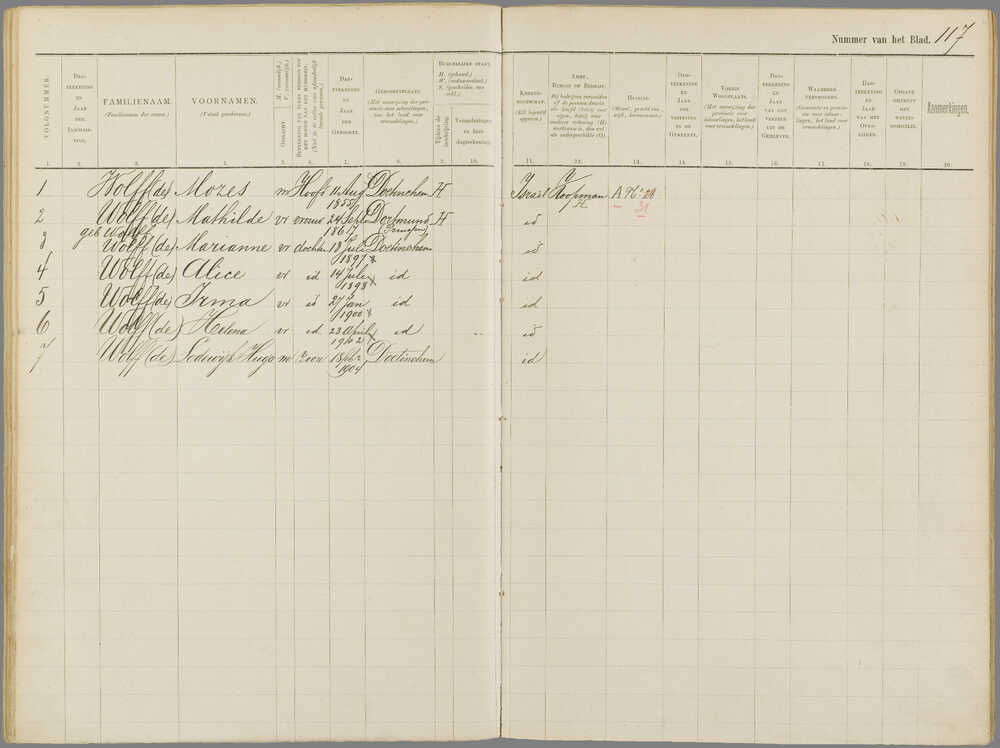 Nummer van het Blad. 117
VOLGNUMMER.
FAMILIENAAM.
(Familienaam der vrouw.)
VOORNAMEN.
(Voluit geschreven.)
GESLACHT
M. (mannelijk.)
V. (vrouwelijk.)
DAGTEEKENING
EN
JAAR
DER
GEBOORTE.
GEBOORTEPLAATS
BURGERLIJKE STAAT.
H. (gehuwd.)
W. (weduwstaat.)
Tijdens de inschrijving.
Veranderingen en hare dagteekening.
KERKGENOOTSCHAP.
AMBT,
BEROEP OF BEDRIJF.
HUISNR.
DAGTEEKENING
EN
JAAR
DER
VESTIGING
IN DE
GEMEENTE.
VORIGE
WOONPLAATS.
DAGTEEKENING
EN
JAAR
VAN HET
VERTREK
UIT DE
GEMEENTE.
WAARHEEN
VERTROKKEN.
DAGTEEKENING
EN
JAAR
VAN HET
OVERLIJDEN.
Aanmerkingen.
1. 2. 3. 4. 5. 6. 7. 8. 9. 10. 11. 12. 13. 14. 15. 16. 17. 18. 19. 20.
1 Wolff (de) Mozes m Hoofd 11 Aug 1855 Doetinchem H Israel Koopman H A No 28
31
2 Wolff (de) Mathilde vr vrouw 24 Sept 1867 Dortmund H id
geb Wolff (Pruisen)
3 Wolff (de) Marianne vr dochter 18 Juli 1897 Doetinchem id
4 Wolff (de) Alice vr id 14 Juli 1898 id id
5 Wolff (de) Irma vr id 21 Jan 1900 id id
6 Wolff (de) Helena vr id 23 April 1902 id id
7 Wolff (de) Lodewijk Hugo m zoon 1904 Doetinchem id